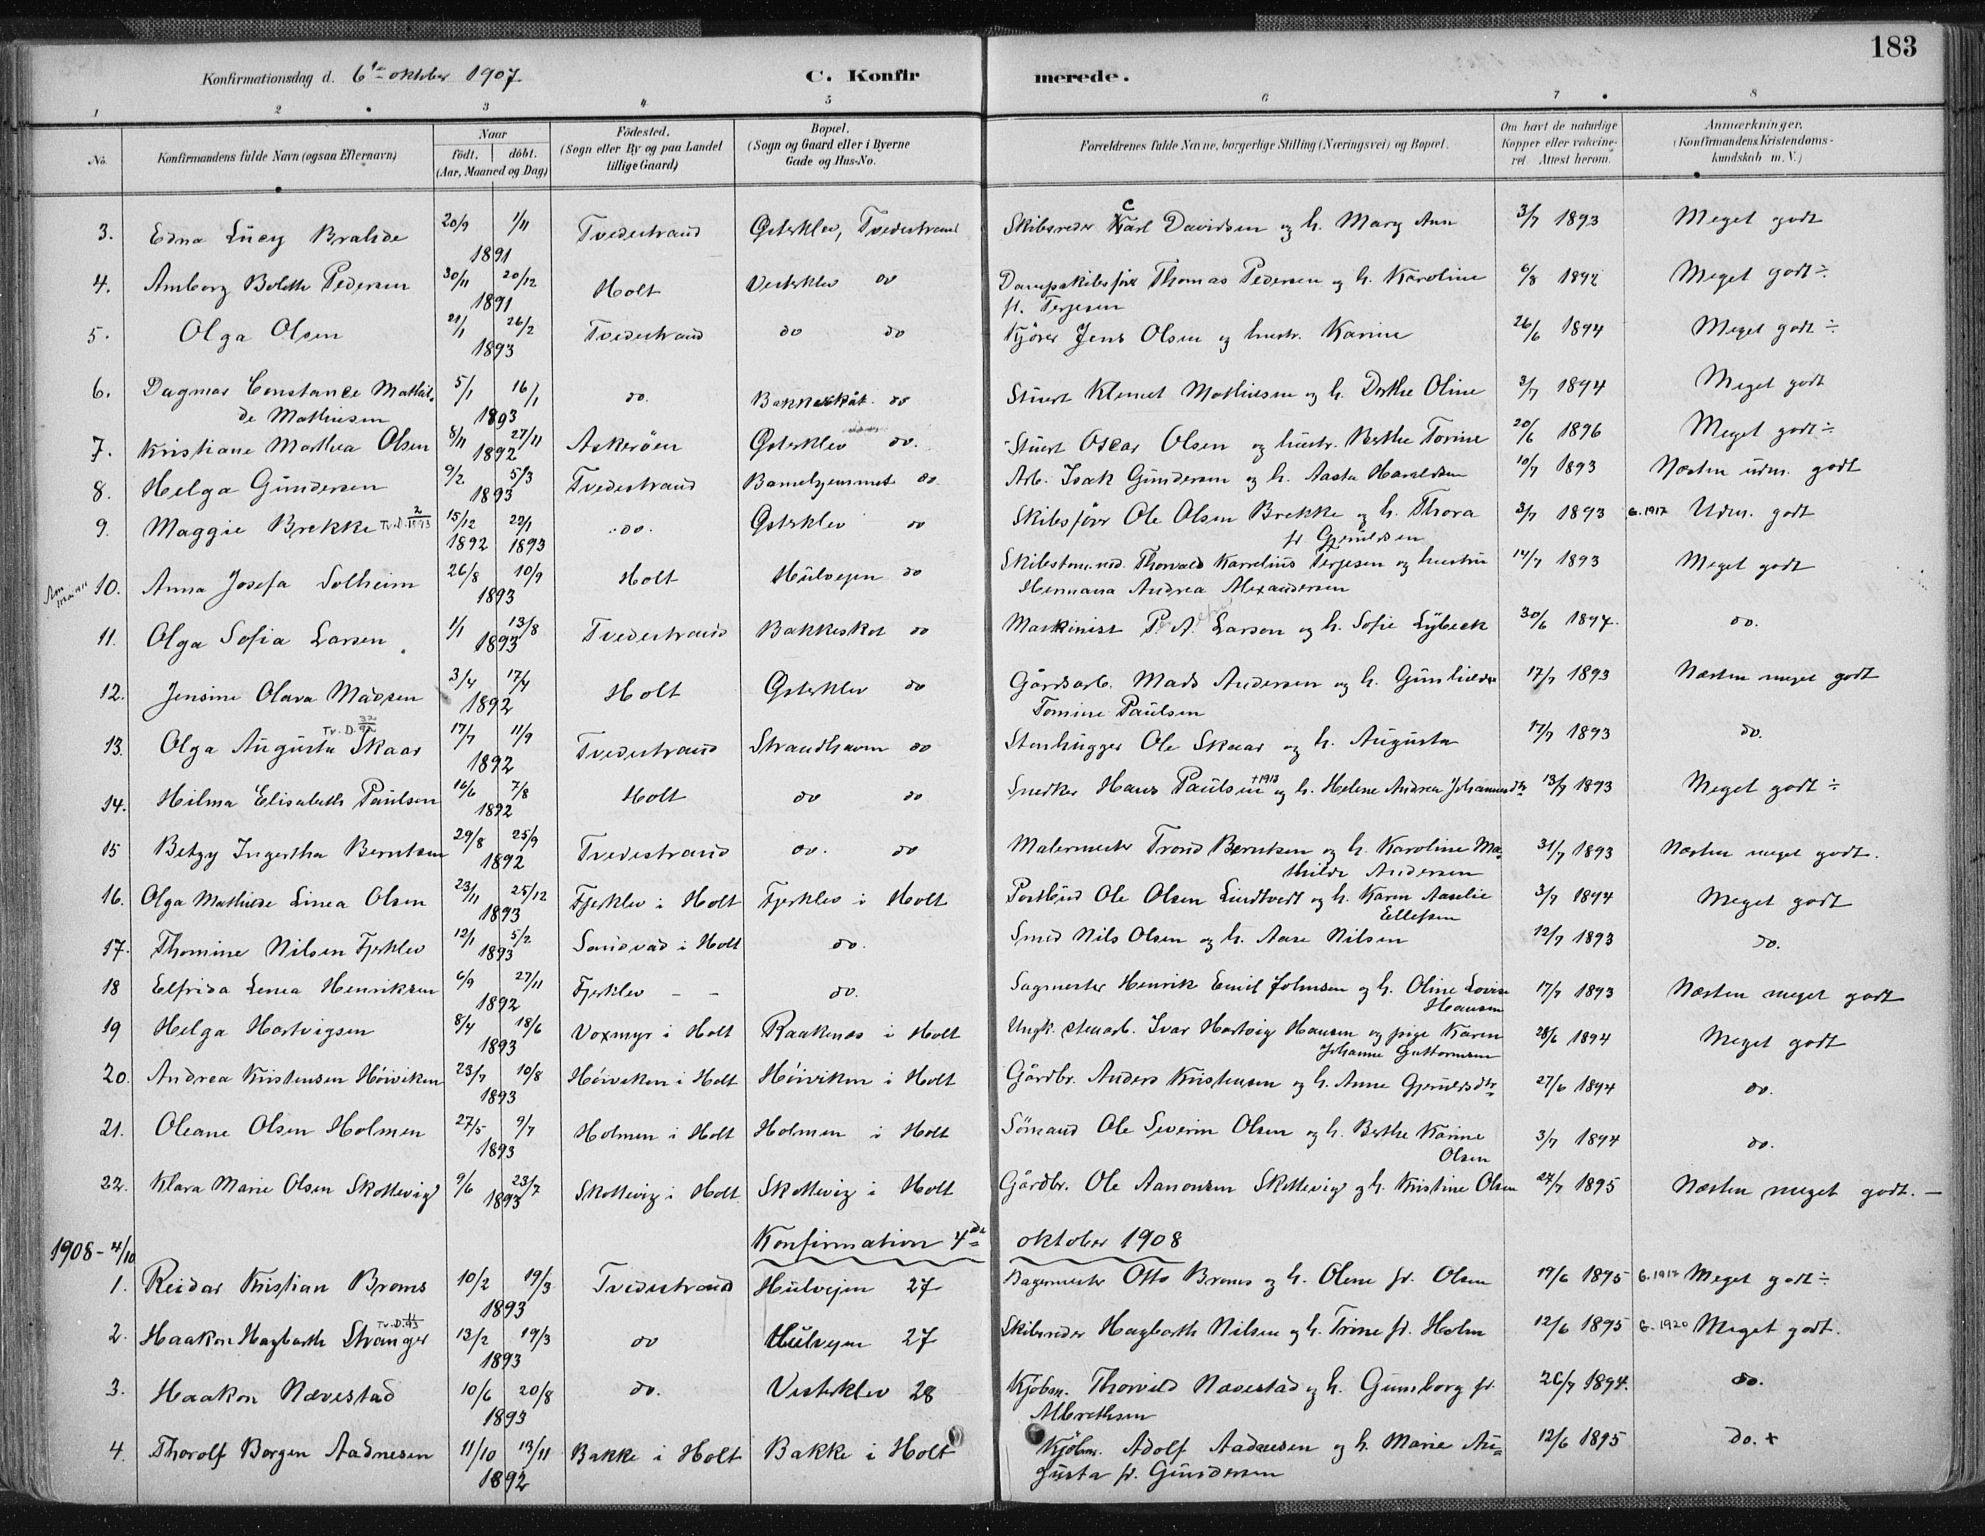 183
Konfirmationsdag d. 6te oktober 1907 C. Konfirmerede.
1 2 3 4 5 6 7 8
No. Konfirmandens fulde Navn (ogsaa Efternavn) Naar födt. döbt. (Aar, Maaned og Dag) Födested. (Sogn eller By og paa Landet tillige Gaard) Bopæl. (Sogn og Gaard eller i Byerne Gade og Hus-No. Forældrenes fulde Navne, borgerlige Stilling (Næringsvei) og Bopæl. Om havt de naturlige Kopper eller vakcineret Attest herom. Anmærkninger. (Konfirmandens Kristendomskundskab m. V.)
3. Edna Lucy Bralide 20/9 1/11 1891 Tvedestrand Østerklev, Tvedestrand Skibsreder Carl Davidsen og h. Mary Ann 3/7 1893 Meget godt
4. Amborg Bolette Pedersen 30/11 20/12 1891 Holt Vesterklev do Dampskibsfører Thomas Pedersen og h. Karoline f. Terjesen 6/8 1892 Meget godt ÷
5. Olga Olsen 21/1 26/2 1893 Tvedestrand do do Kjører Jens Olsen og hustr. Karine 26/6 1894 Meget godt ÷
6. Dagmar Constance Mathilde Mathiesen 5/1 16/1 1893 do. Bakkeskåt do Stuert Klemet Mathiesen og h. Dorthe Oline 3/7 1894 Meget godt
7. Kristiane Marthea Olsen 8/11 27/11 1892 Askerøen Østerklev do. Stuert Oscar Olsen og hustr. Berthe Torine 20/6 1896 Meget godt ÷
8. Helga Gundersen 9/2 5/3 1893 Tvedestrand Barnehjemmet do. Arb. Isak Gundersen og h. Aasta Haraldsen 10/7 1893 Næsten udm. godt
9. Maggie Brekke Tv.D. 2/1893 15/12 1892 22/1 1893 do. Østerklev do Skibsfører Ole Olsen Brekke og h. Thora f. Gjeruldsen 3/7 1893 G. 1917 Udm. godt
10. Anna Josefa Solheim 26/8 10/9 1893 Holt Hulvejen do Thorvald Karrelius Terjesen og hustru Hermana Andrea Alexandersen 14/7 1893 Meget godt
11. Olga Sofia Larsen 1/1 13/8 1893 Tvedestrand Bakkeskot do Maskinist P. A. Larsen og h. Sofie Lybeck 30/6 1897. do.
12. Jensine Olava Madsen 3/4 17/4 1892 Holt Østerklev do Gårdsarb. Mads Andersen og h. Gunhilde Tomine Paulsen 17/7 1893 Næsten meget godt
13. Olga Augusta Skaar Tv. D. 32/92 17/7 11/9 1892 Tvedestrand Strandhavn do Stenhugger Ole Skaar og h. Augusta 17/7 1893 do.
14. Hilma Elisabeth Paulsen 16/6 7/8 1892 Holt do do Snedker Hans Paulsen †1913 og h. Helene Andrea Johannesdtr 13/7 1893 Meget godt ÷
15 Betzy Ingertha Berntsen 29/8 25/9 1892 Tvedestrand do. do Malermester Trond Berntsen og h. Karoline Mathilde Andersen 31/7 1893 Næsten meget godt.
16. Olga Mathilde Linea Olsen 23/11 25/12 1893 Fjerklev i Holt Fjerklev i Holt Postbud Ole Olsen Lindtvedt og h. Karen Aaselie Ellefsen 3/7 1894 Meget godt
17. Thomine Nilsen Fjerklev 12/1 5/2 1893 Sandvad i Holt do. Smed Nils Olsen og h. Aase Nilsen 12/7 1893 do.
18 Elfrida Lenea Henriksen 6/9 27/11 1892 Fjerklev – – do. Sagmester Henrik Emil Johnsen og h. Oline Lovise Hansen 17/7 1893 Næsten meget godt
19 Helga Hartvigsen 8/4 18/6 1893 Voxmyr i Holt Raakenes i Holt Ungk. stenarb. Ivar Hartvig Hansen og pige Karen Johanne Guttormsen 28/6 1894 Meget godt
20. Andrea Kristensen Höiviken 23/7 10/8 1893 Höiviken i Holt Höiviken i Holt Gårdbr. Anders Kristensen og h. Anne Gjeruldsdtr 27/6 1894 do.
21. Oleane Olsen Holmen 27/5 9/7 1893 Holmen i Holt Holmen i Holt Sömand Ole Severin Olsen og h. Berthe Karine Olsen 3/7 1894 do.
22. Klara Marie Olsen Skottevig 9/6 23/7 1893 Skottevig i Holt Skottevig i Holt Gårdbr. Ole Aanonsen Skottevig og h. Kristine Olsen 27/7 1895 Næsten meget godt. –
1908 – 4/10 Konfirmation 4de oktober 1908
1. Reidar Kristian Broms 10/2 19/3 1893 Tvedestrand Hulvejen 27 Bagermester Otto Broms og h. Olene f. Olsen 19/6 1895 G. 1917 Meget godt ÷
2. Haakon Hagbarth Stranger 13/2 19/3 1893 do Hulvejen 27 Skibsreder Hagbarth Nilsen og h. Trine f. Holm 12/6 1895 G. 1920 Meget godt.
3. Haakon Nævestad 10/6 20/8 1893 do. Vesterklev 28 Kjøbm. Thorvald Nævestad og h. Gunnborg f. Albrethsen 26/7 1894. do.
4. Thorolf Borgen Aadnesen 11/10 13/11 1892 Bakke i Holt Bakke i Holt Kjøbm. Adolf Aadnesen og h. Marie Augusta f. Gundersen 12/6 1895 do. +